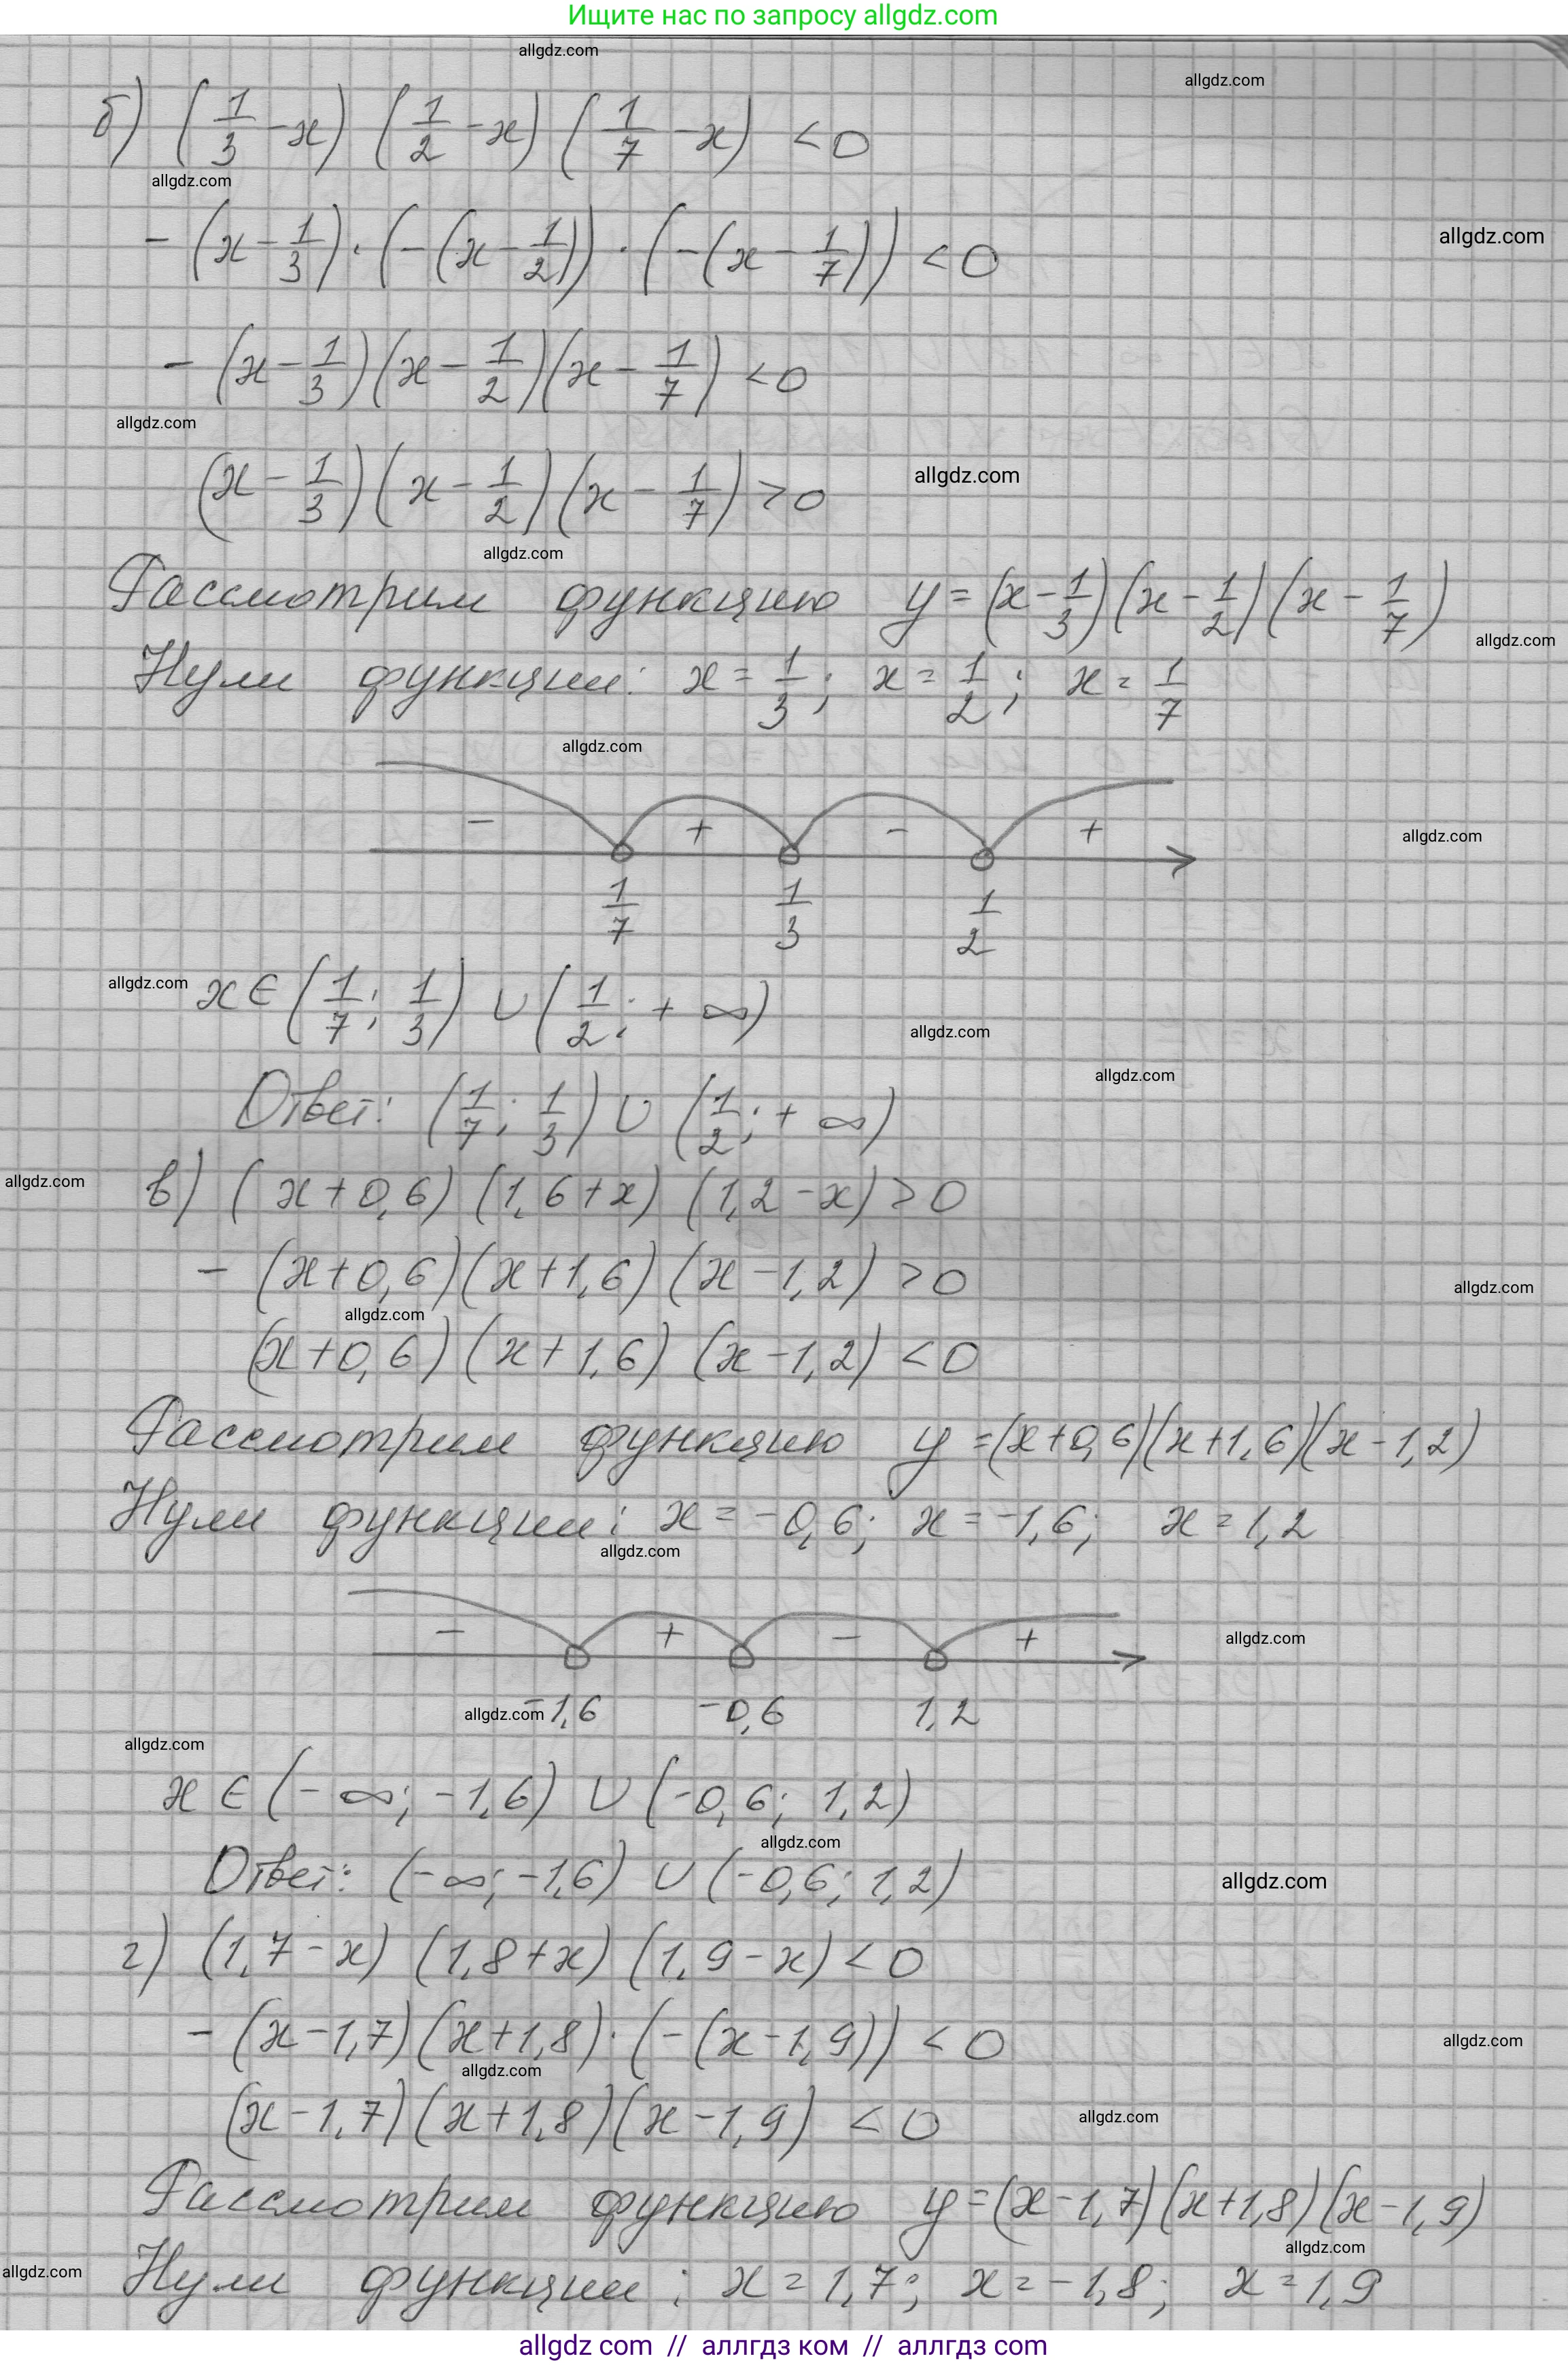 Ищите нас по запросу allgdz.com
allgdz.com
allgdz.com
б) (1/3 - x) (1/2 - x) (1/7 - x) < 0
allgdz.com
- (x - 1/3) · (- (x - 1/2)) · (- (x - 1/7)) < 0
allgdz.com
- (x - 1/3) (x - 1/2) (x - 1/7) < 0
allgdz.com
(x - 1/3) (x - 1/2) (x - 1/7) > 0
allgdz.com
allgdz.com
Рассмотрим функцию y = (x - 1/3) (x - 1/2) (x - 1/7)
allgdz.com
Нули функции: x = 1/3; x = 1/2; x = 1/7
allgdz.com
- + - +
allgdz.com
1/7 1/3 1/2
allgdz.com
x ∈ (1/7; 1/3) ∪ (1/2; + ∞)
allgdz.com
allgdz.com
Ответ: (1/7; 1/3) ∪ (1/2; + ∞)
allgdz.com
в) (x + 0,6) (1,6 + x) (1,2 - x) > 0
- (x + 0,6) (x + 1,6) (x - 1,2) > 0
allgdz.com
allgdz.com
(x + 0,6) (x + 1,6) (x - 1,2) < 0
Рассмотрим функцию y = (x + 0,6) (x + 1,6) (x - 1,2)
Нули функции: x = -0,6; x = -1,6; x = 1,2
allgdz.com
- + - +
allgdz.com
allgdz.com -1,6 -0,6 1,2
allgdz.com
x ∈ (- ∞; -1,6) ∪ (-0,6; 1,2)
allgdz.com
Ответ: (- ∞; -1,6) ∪ (-0,6; 1,2)
allgdz.com
г) (1,7 - x) (1,8 + x) (1,9 - x) < 0
- (x - 1,7) (x + 1,8) · (- (x - 1,9)) < 0
allgdz.com
allgdz.com
(x - 1,7) (x + 1,8) (x - 1,9) < 0
allgdz.com
Рассмотрим функцию y = (x - 1,7) (x + 1,8) (x - 1,9)
allgdz.com
allgdz.com
Нули функции: x = 1,7; x = -1,8; x = 1,9
allgdz com // аллгдз ком // аллгдз com